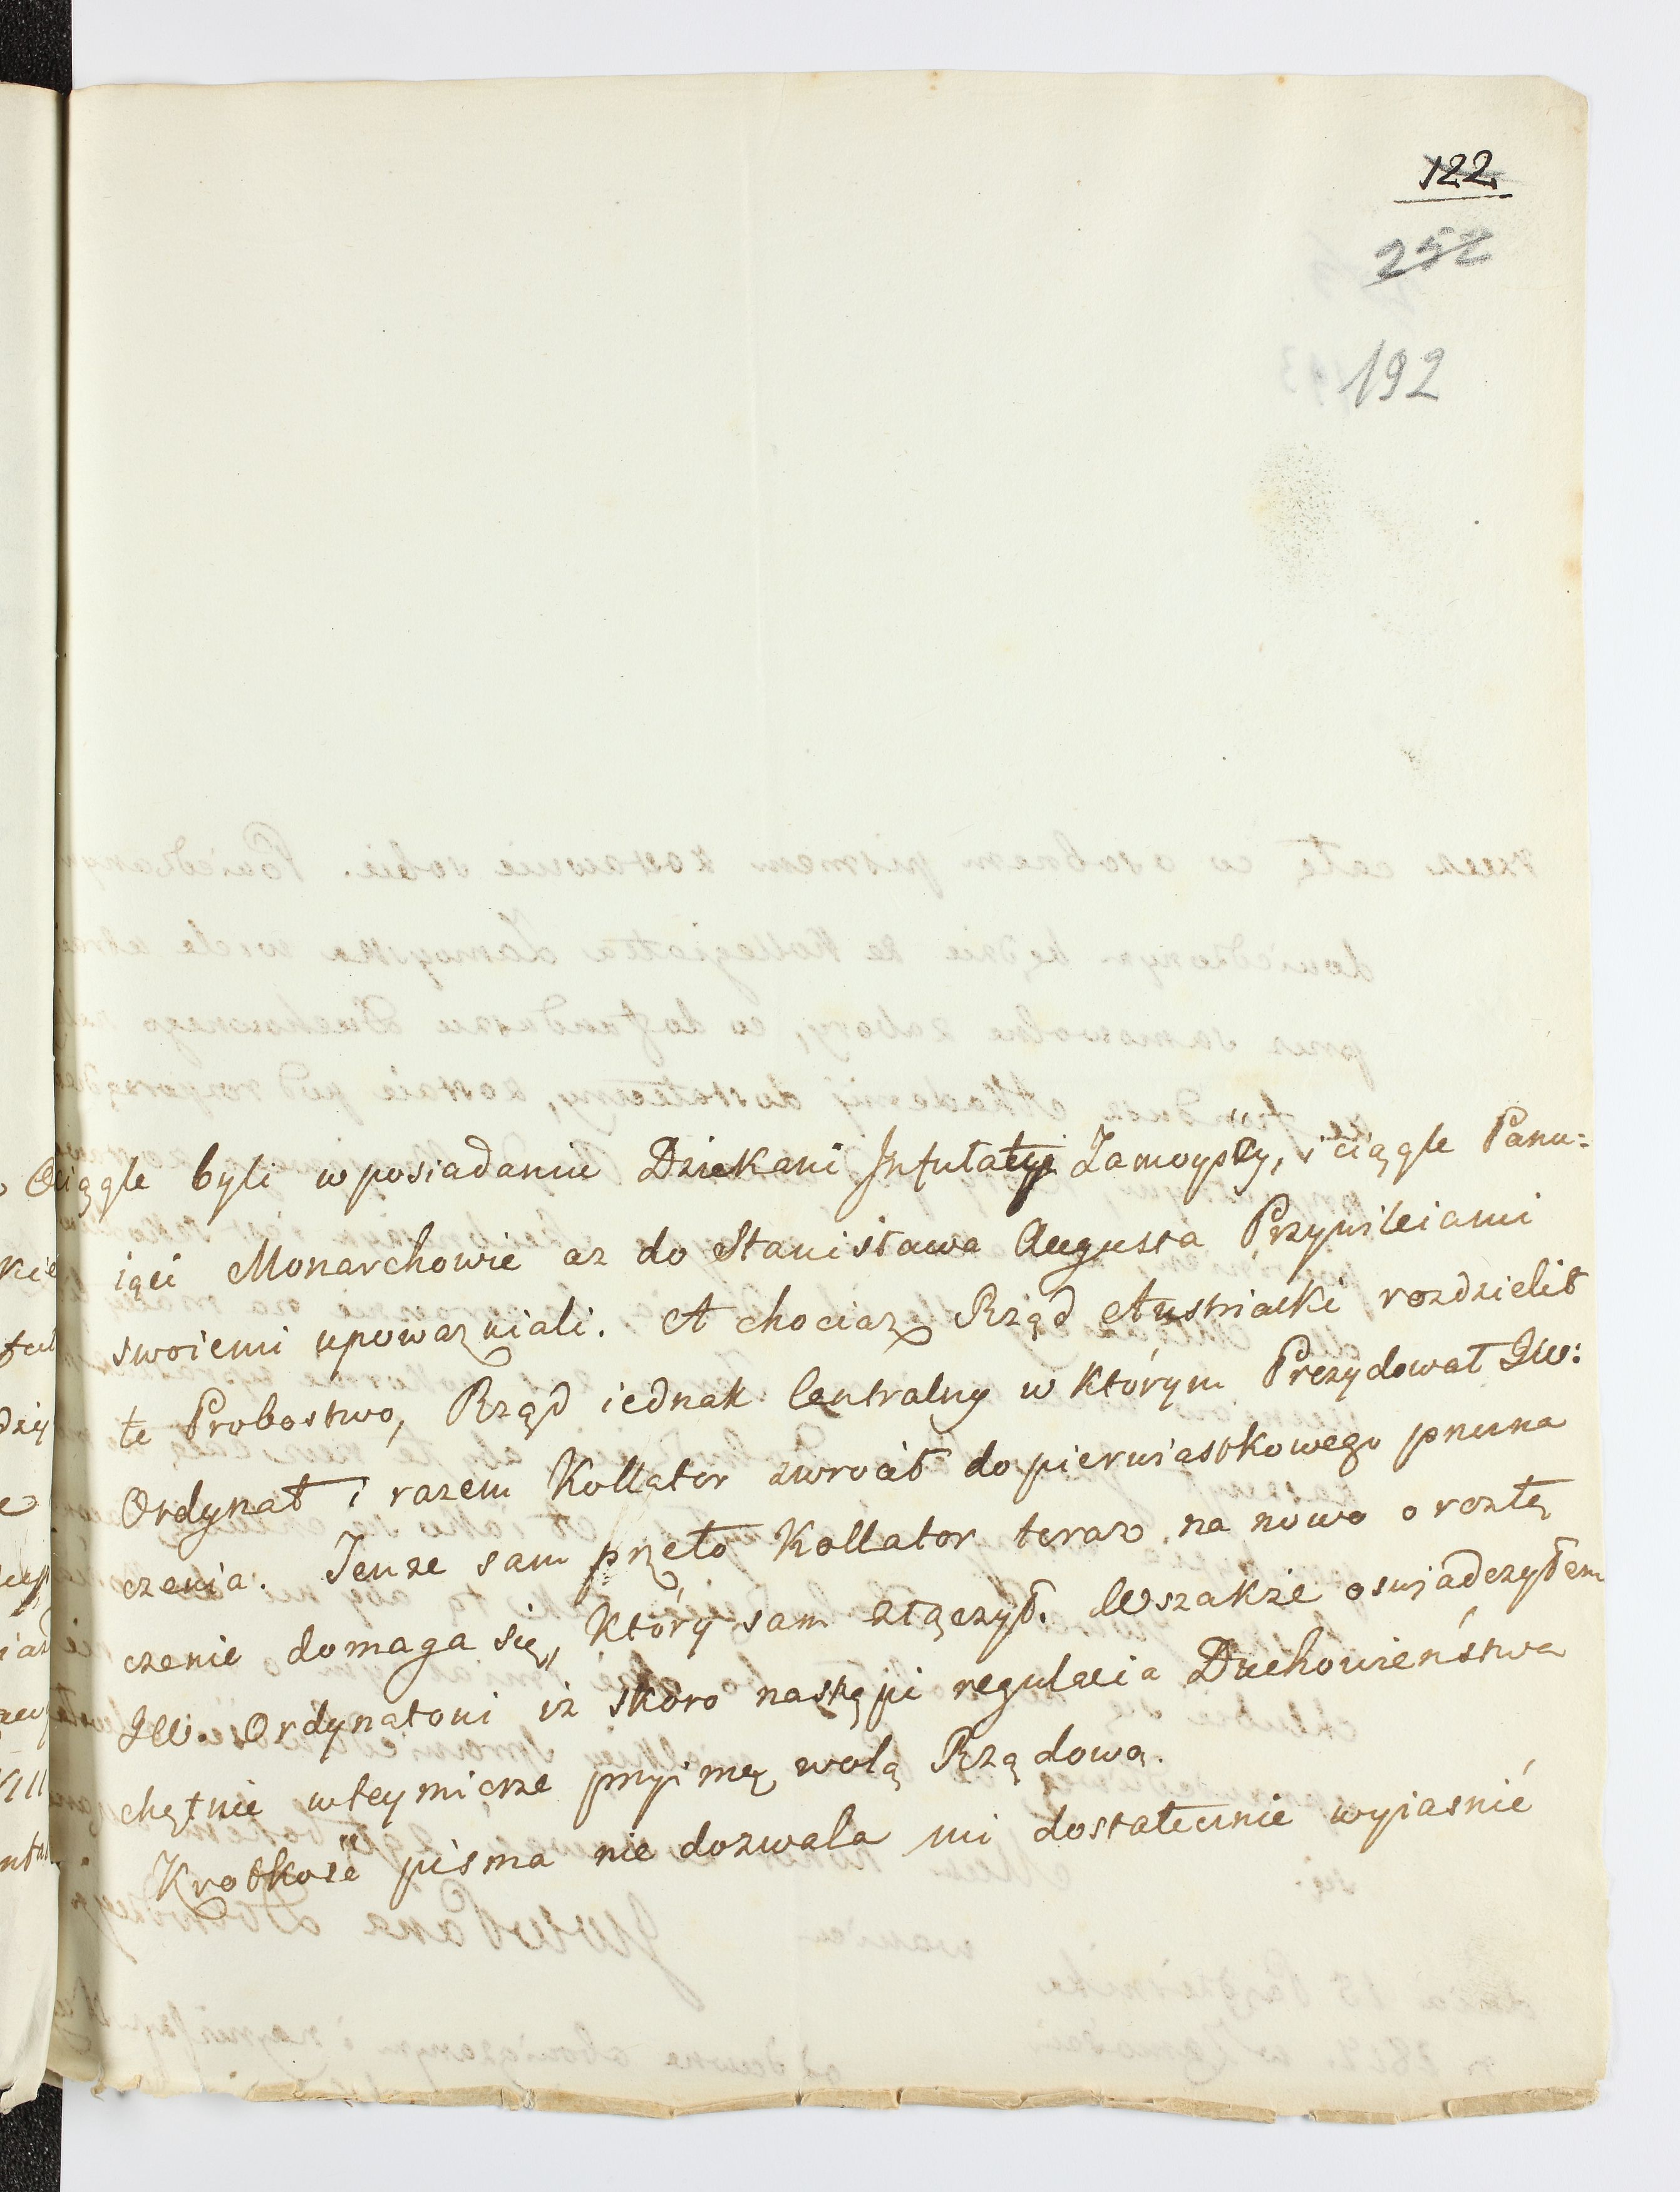 122
252
192
Ciągle byli w posiadaniu Dziekani Infułatyi Zamoyscy, i ciągle Panu:
iący Monarchowie az do Stanisława Augusta Przywileiami
swoiemi upoważniali. A chociaz Rząd Austriacki rozdzielił
te Probostwo, Rząd iednak Centralny w którym Prezydował JW:
Ordynat i razem Kollator zwrocił do pierwiastkowego przezna
czenia. Tenze sam przeto Kollator teraz na nowo o rozłą
czenie domaga się, który sam złączył. Wszakże oswiadczyłem
JW. Ordynatowi iż skoro nastąpi regulacia Duchowieństwa
chętnie w tey mierze przyimę wolą Rządową.
Krotkość pisma nie dozwala mi dostatecznie wyiasnić